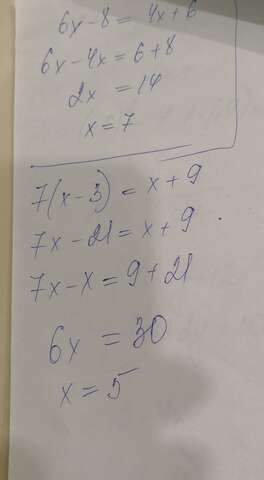 6x-8=4x+6
6x-4x=6+8
2x=14
x=7
7(x-3)=x+9
7x-21=x+9
7x-x=9+21
6x=30
x=5